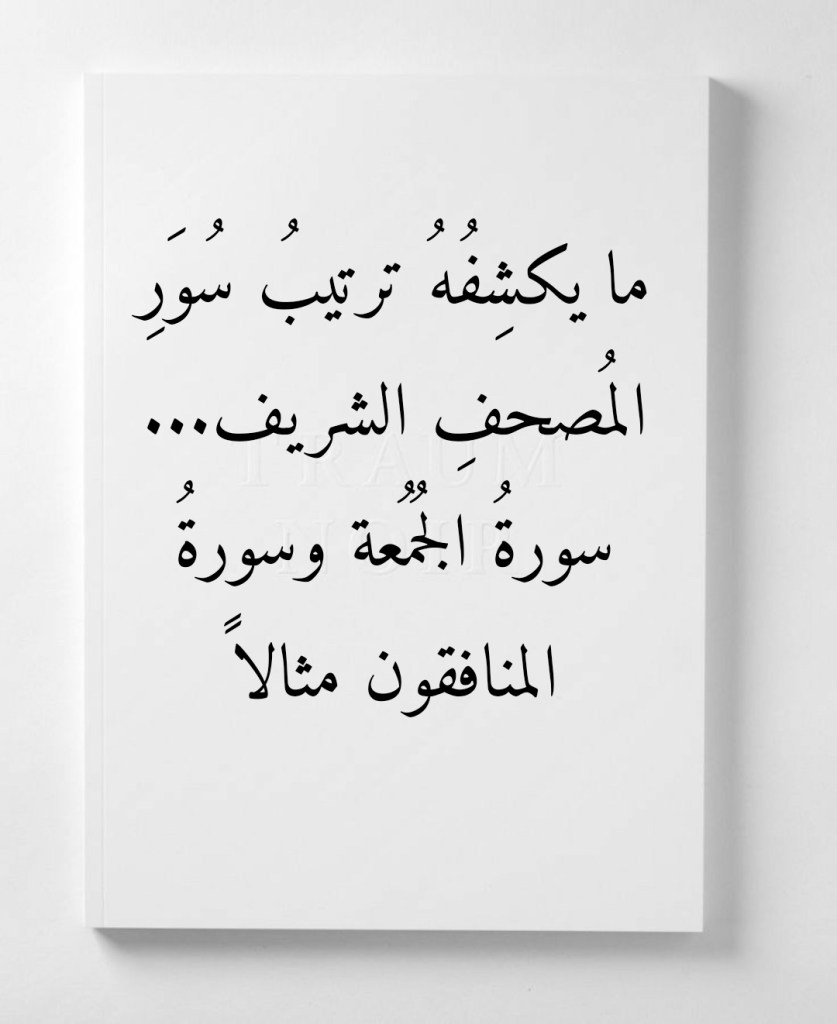 ما يكشِفُهُ ترتيبُ سُوَرِ
المُصحفِ الشريف...
سورةُ الجُمُعة وسورةُ
المنافقون مثالاً
TRAUM
NOIR